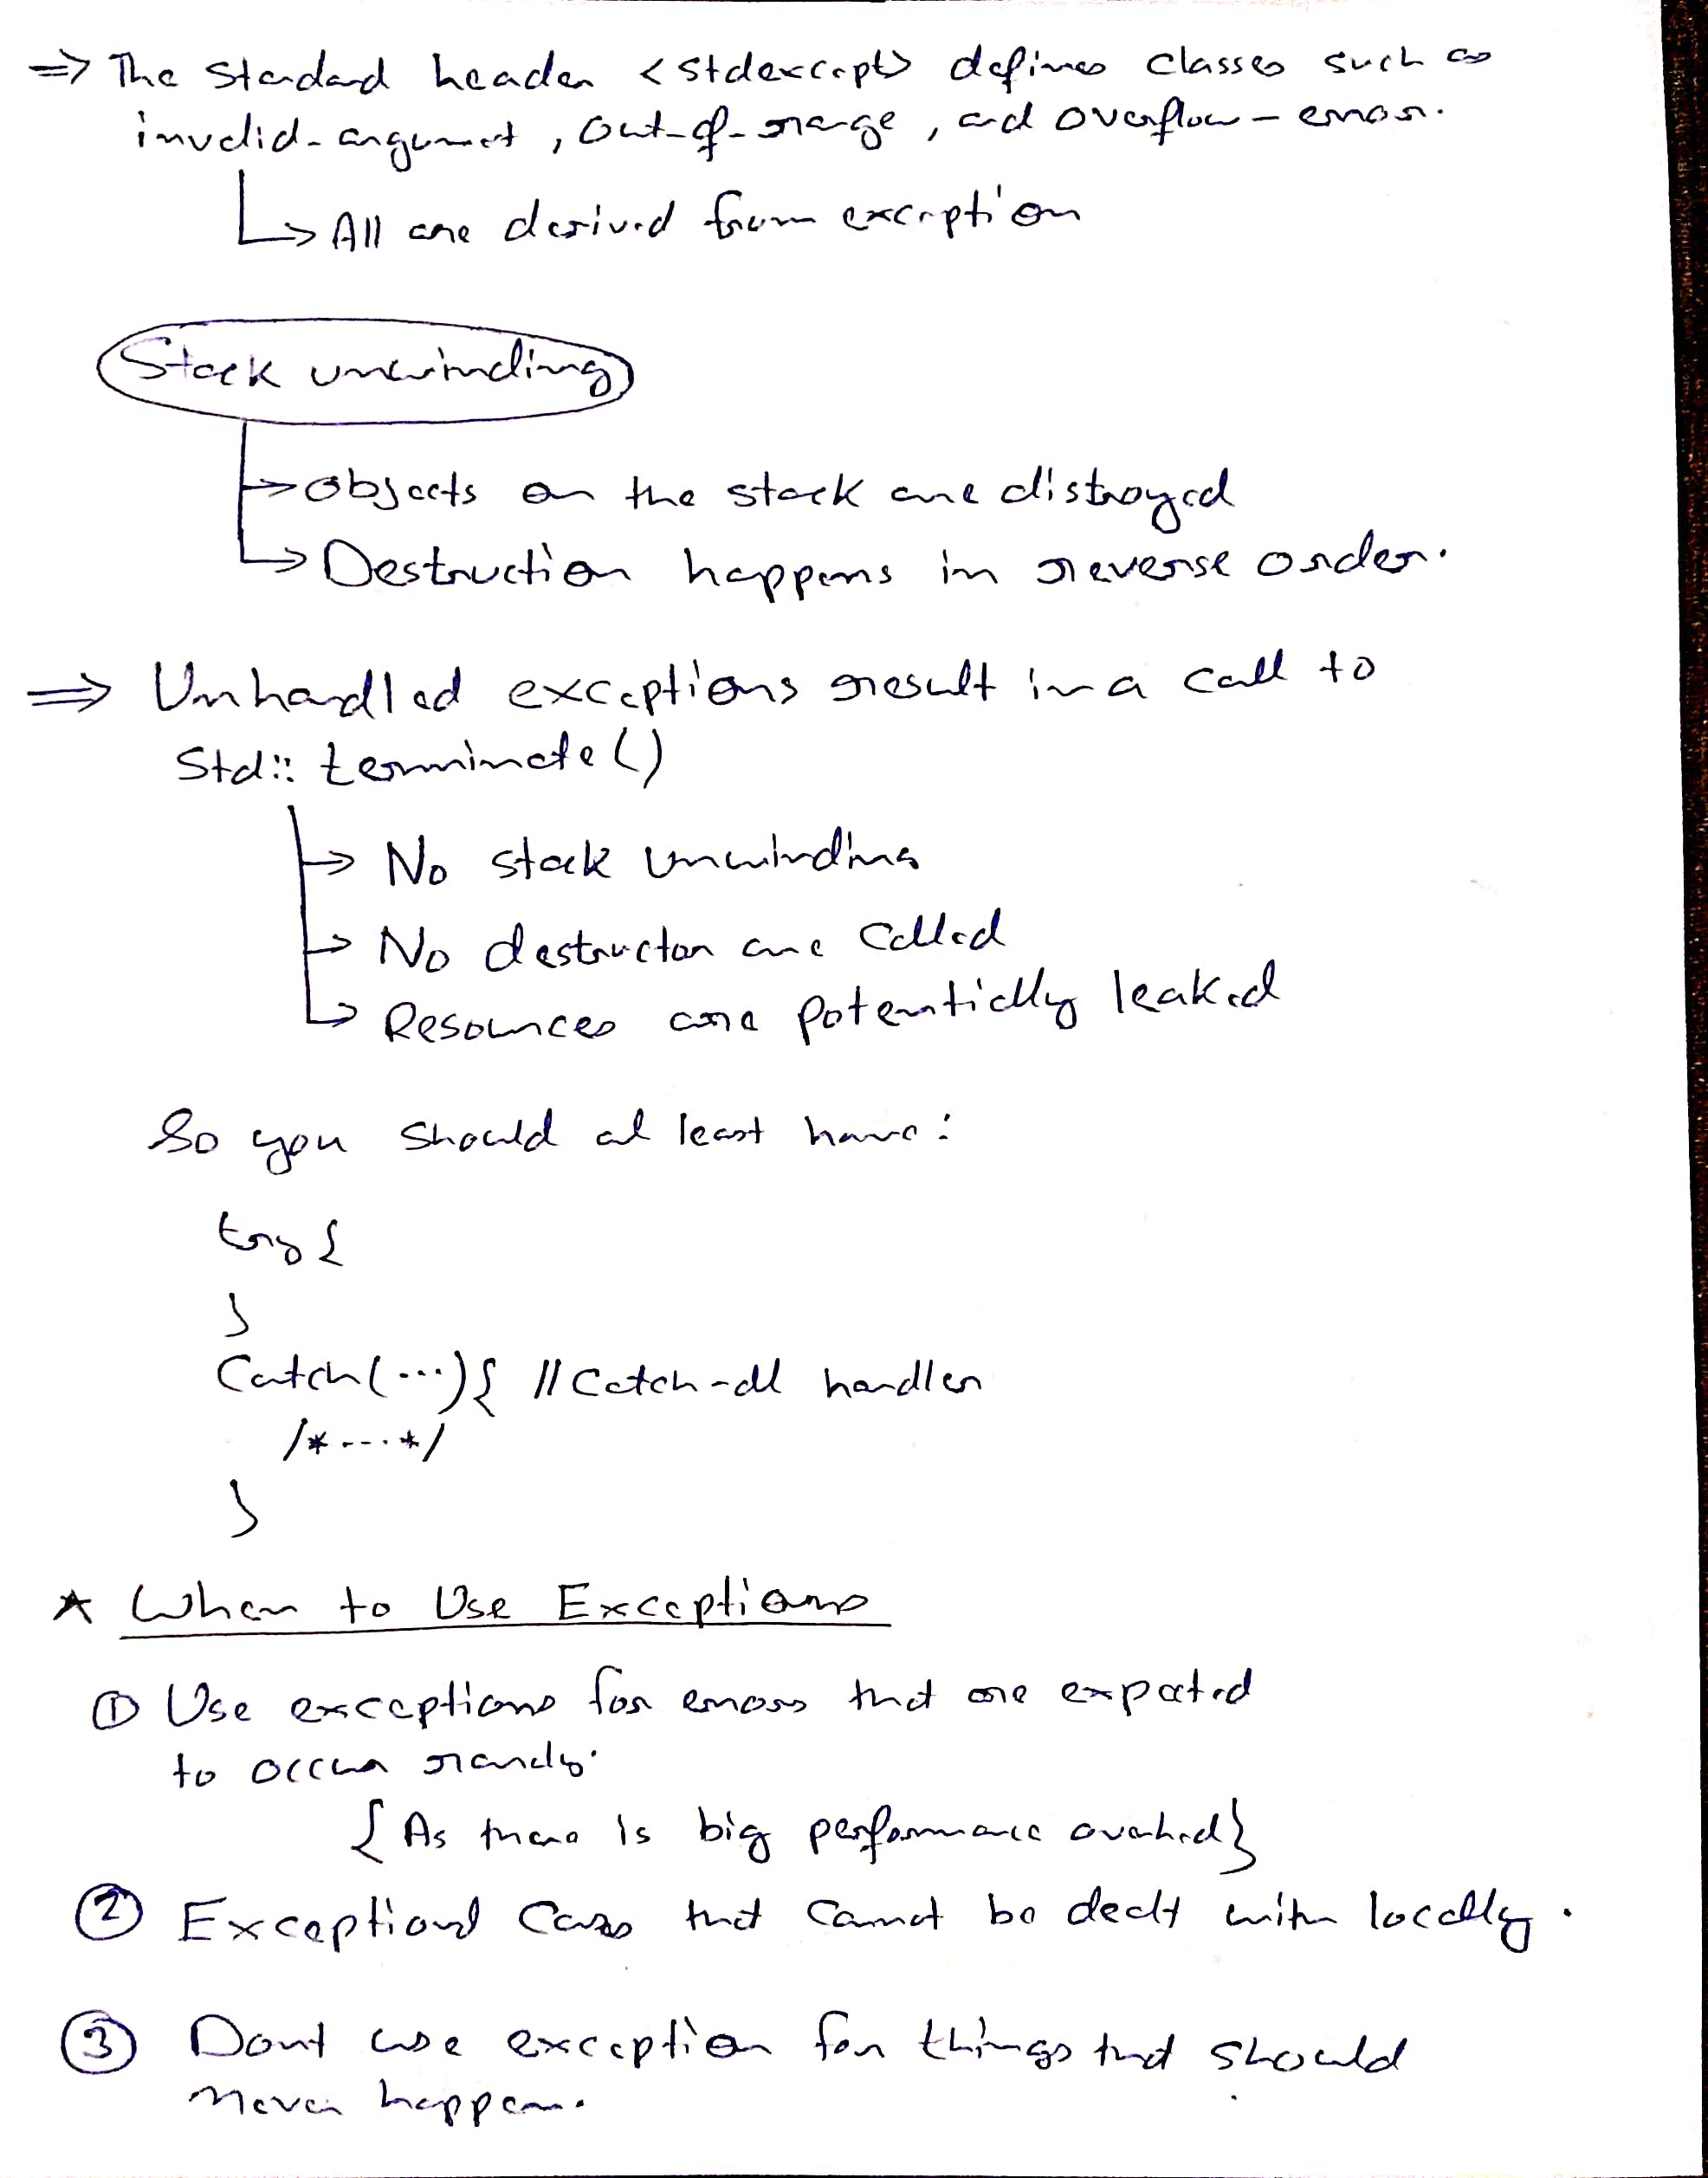 => The Standard header <stdexcept> defines classes such as
invalid-argument, out-of-range, and overflow-error.
↳ All are derived from exception
Stack unwinding
→ Objects on the stack are distroyed
↳ Destruction happens in reverse order.
=> Unhandled exceptions result in a call to
Std:: terminate()
→ No stack unwinding
→ No destructor are called
↳ Resources are potentially leaked
So you should at least have:
try {
}
Catch(...){ // Catch-all handler
/*....*/
}
* When to Use Exceptions
① Use exceptions for errors that are expected
to occur rarely.
{As there is big performance overhead}
② Exceptional Cases that cannot be dealt with locally.
③ Dont use exception for things that should
never happen.